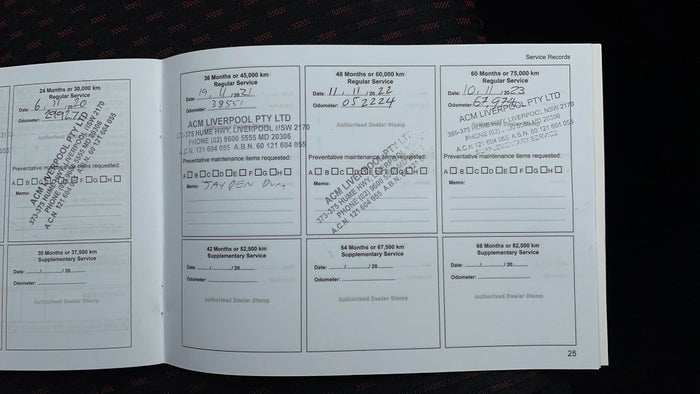 Service Records
24 Months or 30,000 km
Regular Service
Date: 6 / 11 / 2020
Odometer:
ACM LIVERPOOL PTY LTD
373-375 HUME HWY, LIVERPOOL NSW 2170
PHONE (02) 9600 5555 MD 20306
A.C.N. 121 604 055 A.B.N. 60 121 604 055
Preventative maintenance items requested:
A B C D E F G H
Memo:
36 Months or 45,000 km
Regular Service
Date: 19 / 11 / 2021
Odometer: 38551
ACM LIVERPOOL PTY LTD
373-375 HUME HWY, LIVERPOOL NSW 2170
PHONE (02) 9600 5555 MD 20306
A.C.N. 121 604 055 A.B.N. 60 121 604 055
Preventative maintenance items requested:
A B C D E F G H
Memo: JAYDEN
48 Months or 60,000 km
Regular Service
Date: 11 / 11 / 2022
Odometer: 052224
Authorised Dealer Stamp
Preventative maintenance items requested:
A B C D E F G H
Memo:
ACM LIVERPOOL PTY LTD
373-375 HUME HWY, LIVERPOOL NSW
PHONE (02) 9600 5555
A.C.N. 121 604 055
60 Months or 75,000 km
Regular Service
Date: 10 / 11 / 2023
Odometer: 67974
ACM LIVERPOOL PTY LTD
HUME HWY, LIVERPOOL NSW 2170
A.C.N. 121 604 055 A.B.N. 60 121 604 055
Preventative maintenance items requested:
A B C D E F G H
Memo:
30 Months or 37,500 km
Supplementary Service
Date: / / 20
Odometer:
Authorised Dealer Stamp
42 Months or 52,500 km
Supplementary Service
Date: / / 20
Odometer:
Authorised Dealer Stamp
54 Months or 67,500 km
Supplementary Service
Date: / / 20
Odometer:
Authorised Dealer Stamp
66 Months or 82,500 km
Supplementary Service
Date: / / 20
Odometer:
Authorised Dealer Stamp
25